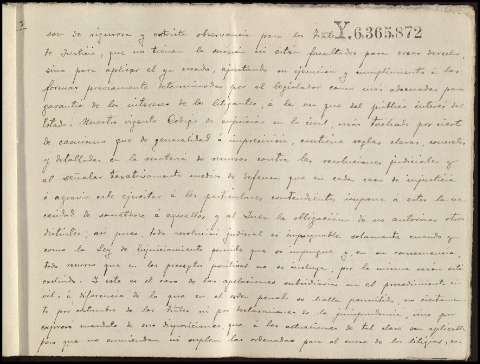 3
Y.6.365.872
son de rigurosa y estricta observancia para los
de Justicia, que no tienen la misión ni están facultados para crear derecho,
sino para aplicar el ya creado, ajustando su ejercicio y cumplimiento á las
formas previamente determinadas por el legislador como más adecuadas para
garantía de los intereses de los litigantes, á la vez que del público interés del
Estado. Nuestro vigente Código de enjuiciar en lo civil, más tachado por cierto
de casuismo que de generalidad é imprecisión, contiene reglas claras, concretas
y detalladas en la materia de recursos contra las resoluciones judiciales y
al señalar taxativamente medios de defensa que en cada caso de injusticia
ó agravio cabe ejercitar á los particulares contendientes impone á estos la ne
cesidad de someterse á aquellos y al Juez la obligación de no autorizar otros
distintos, así pues, toda resolución judicial es impugnable solamente cuando y
como la Ley de Enjuiciamiento permite que se impugne y, en su consecuencia,
todo recurso que en los preceptos positivos no se incluye, por lo mismo será
excluido. Y este es el caso de las apelaciones subsidiarias en el procedimiento ci
vil, á diferencia de lo que en el orden penal se halla permitido, no existien
do por obra de los Jueces ni por declaraciones de la jurisprudencia, sino por
expreso mandato de sus disposiciones, que á las actuaciones de tal clase son aplicables
pero que no enmiendan ni suplen las ordenadas para el curso de los litigios,